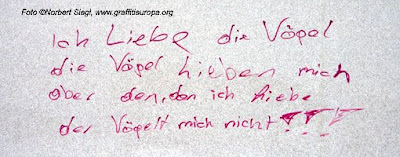 Foto ©Norbert Siegl, www.graffitieuropa.org
Ich Liebe die Vögel
die Vögel lieben mich
aber den, den ich liebe
der Vögelt mich nicht!!!